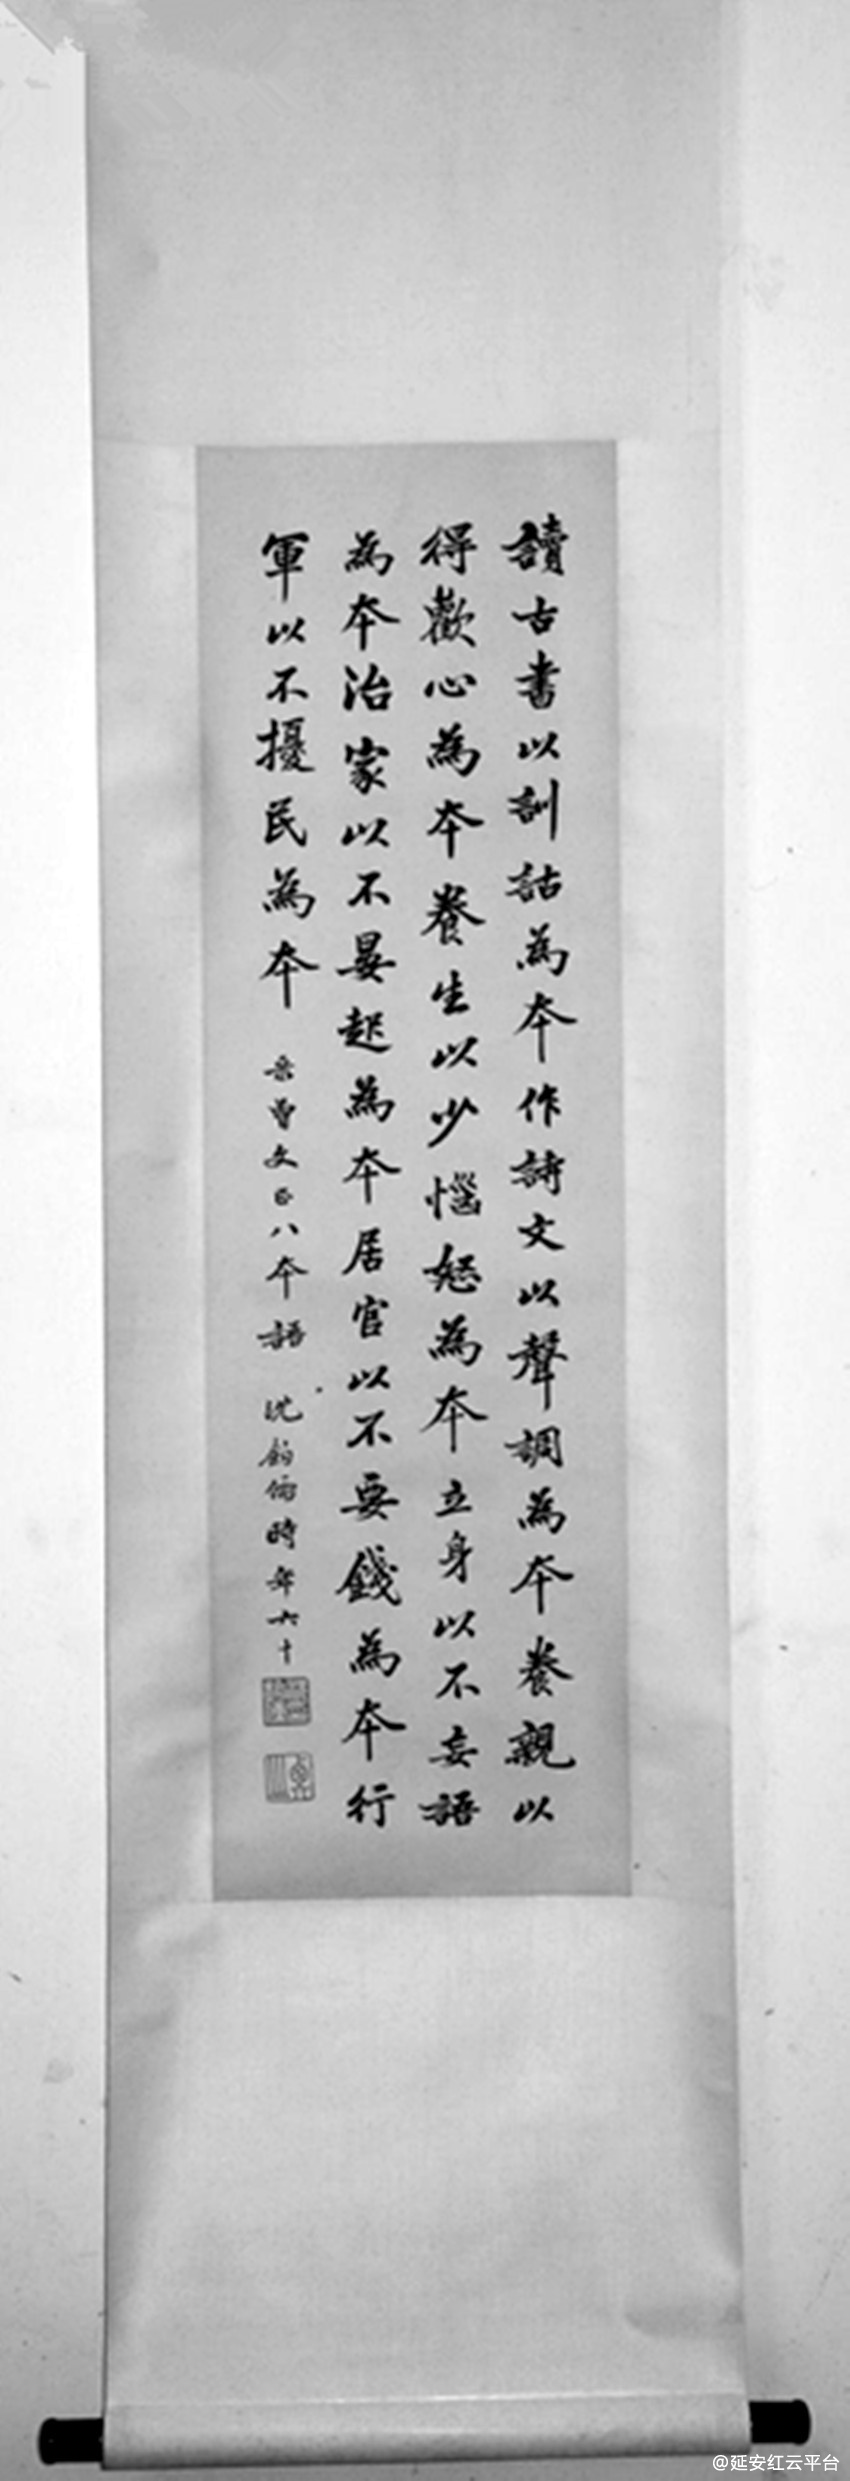 讀古書以訓詁為本作詩文以聲調為本養親以
得歡心為本養生以少惱怒為本立身以不妄語
為本治家以不晏起為本居官以不要錢為本行
軍以不擾民為本 曾文正八本語 沈鈞儒時年六十
@延安红云平台